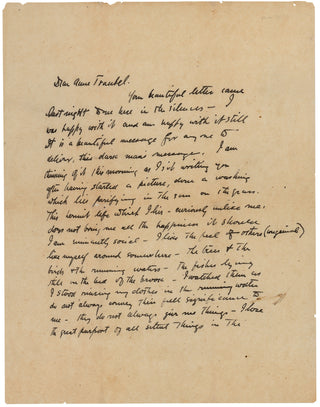 Dear Anne Traubel.
Your beautiful letter came
last night to me here in the silences — I
was happy with it and am happy with it still
It is a beautiful message for any one to
deliver, this dear man's message. I am
thinking of it this morning as I sit writing you
after having started a picture, done a washing
which lies purifying in the sun on the grass.
This hermit life which I live — curiously unlike me.
does not bring me all the happiness it should
I am innately social — I like the feel of others (congenial)
like myself around somewhere — the trees & the
birds & the running waters — the fishes lying
still in the bed of the brook — I watched them as
I stood rinsing my clothes in the running water
do not always convey their full significance to
me — they do not always give me things — I love
the great purport of all silent things in the